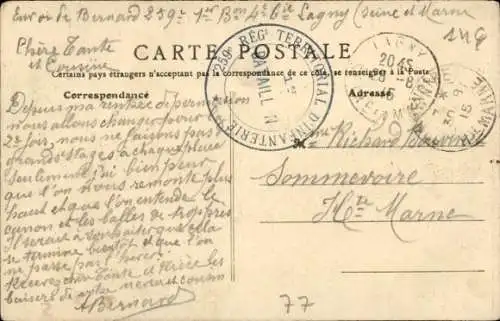 Env. de Bernard 259e 1er Bon 4e Cie Lagny (Seine et Marne
149
Chère Tante
et Cousine
CARTE POSTALE
Certains pays étrangers n'acceptent pas la correspondance de ce côté, se renseigner à la Poste
Correspondance
Adresse
259e RÉGt TERRITORIAL D'INFANTERIE
LAGNY
20 45
Depuis ma rentrée de permission
nous allons changer pour la
2e fois, nous ne faisons pas
grands stages à chaque place
Seulement j'ai bien peur
que l'on nous remonte plus
haut et que l'on entende le
canon et les balles de trop près
Il serait à souhaiter que cela
se termine bientôt et que l'on
ne passe pas l'hiver.
Recevez chère Tante et
baisers de votre neveu et cousin
A Bernard
Richard
Sommevoire
Hte Marne
77